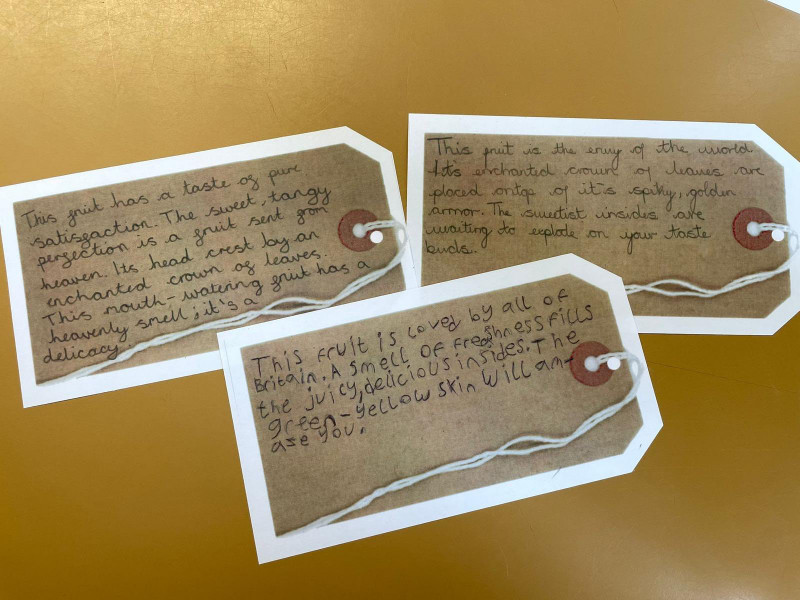 This fruit has a taste of pure
satisfaction. The sweet, tangy
perfection is a fruit sent from
heaven. Its head crest lay an
enchanted crown of leaves.
This mouth-watering fruit has a
heavenly smell; it's a
delicacy.
This fruit is the envy of the world
It's enchanted crown of leaves are
placed ontop of it's spiky, golden
armor. The sweetist insides are
waiting to explode on your taste
buds.
This fruit is loved by all of
Britain. A smell of freshness fills
the juicy, delicious insides. The
green-yellow skin will am-
aze you.